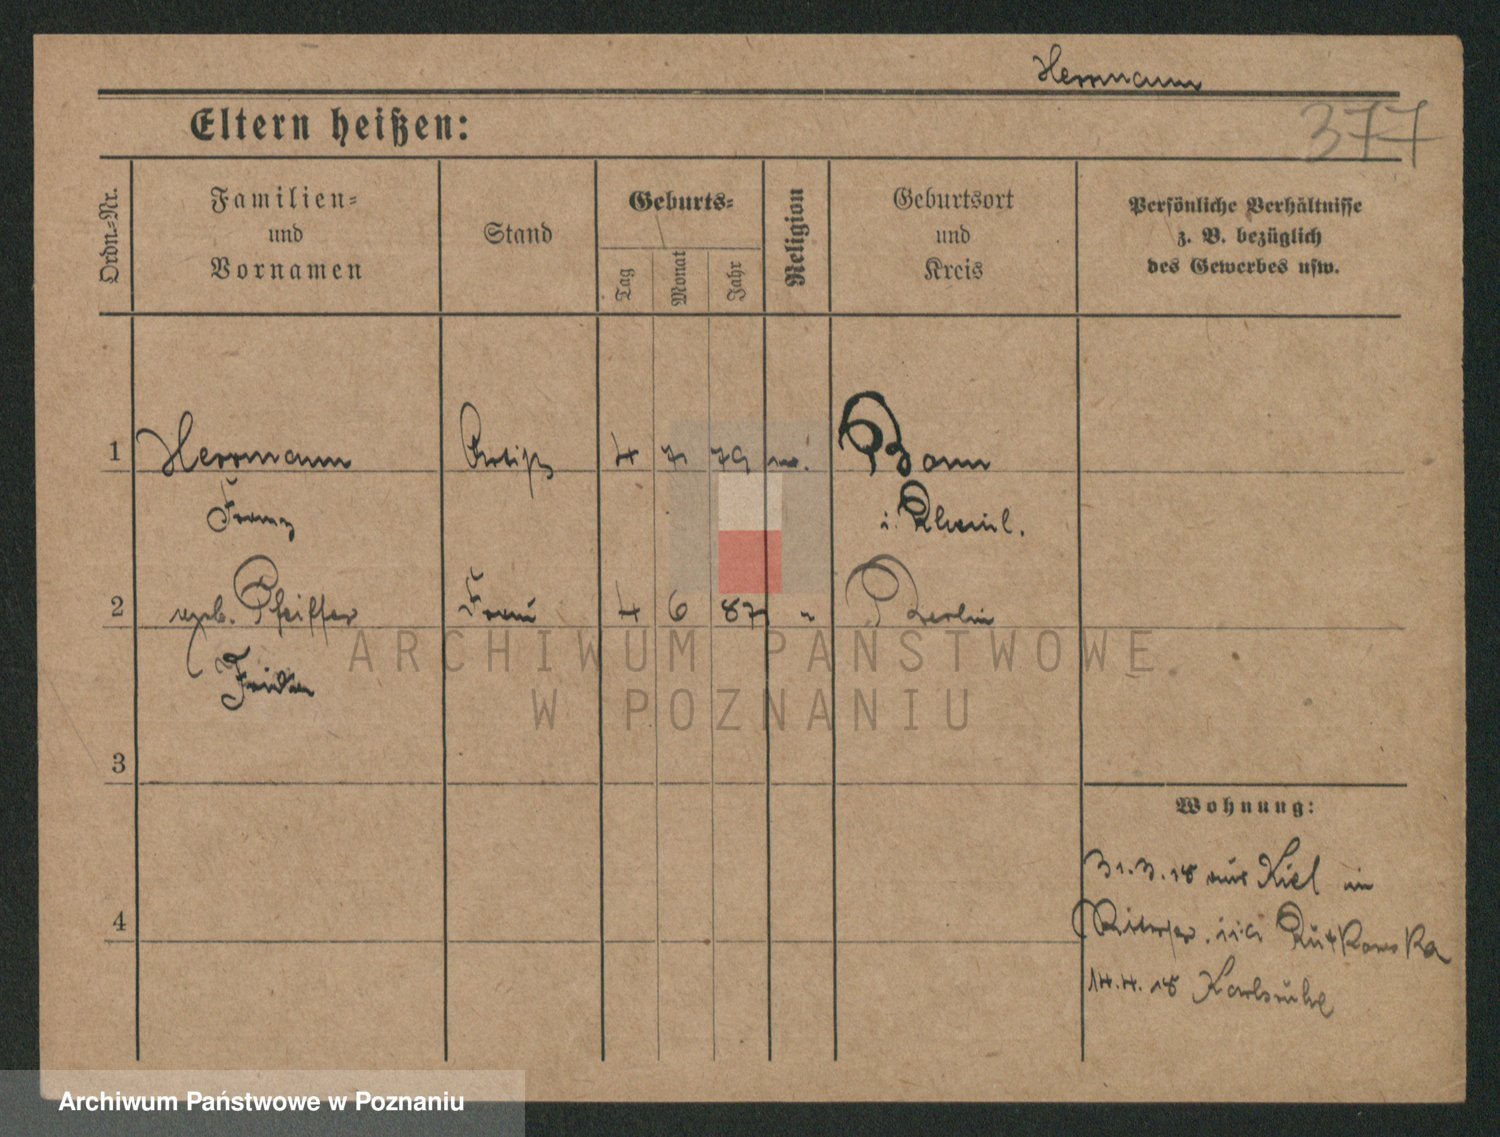 Herrmann
377
Eltern heißen:
Ordn.-Nr.
Familien-
und
Vornamen
Stand
Geburts-
Tag
Monat
Jahr
Religion
Geburtsort
und
Kreis
Persönliche Verhältnisse
z. B. bezüglich
des Gewerbes usw.
1
Herrmann
Artist
4 7 79
Bonn
Franz
i. Rheinl.
2
geb. Pfeiffer
Frau
4 6 87
"
Berlin
Frida
3
Wohnung:
31.3.18 aus Kiel in
Ritterstr. Rutkowska
4
14.4.18 Karlsruhe
ARCHIWUM PAŃSTWOWE
W POZNANIU
Archiwum Państwowe w Poznaniu